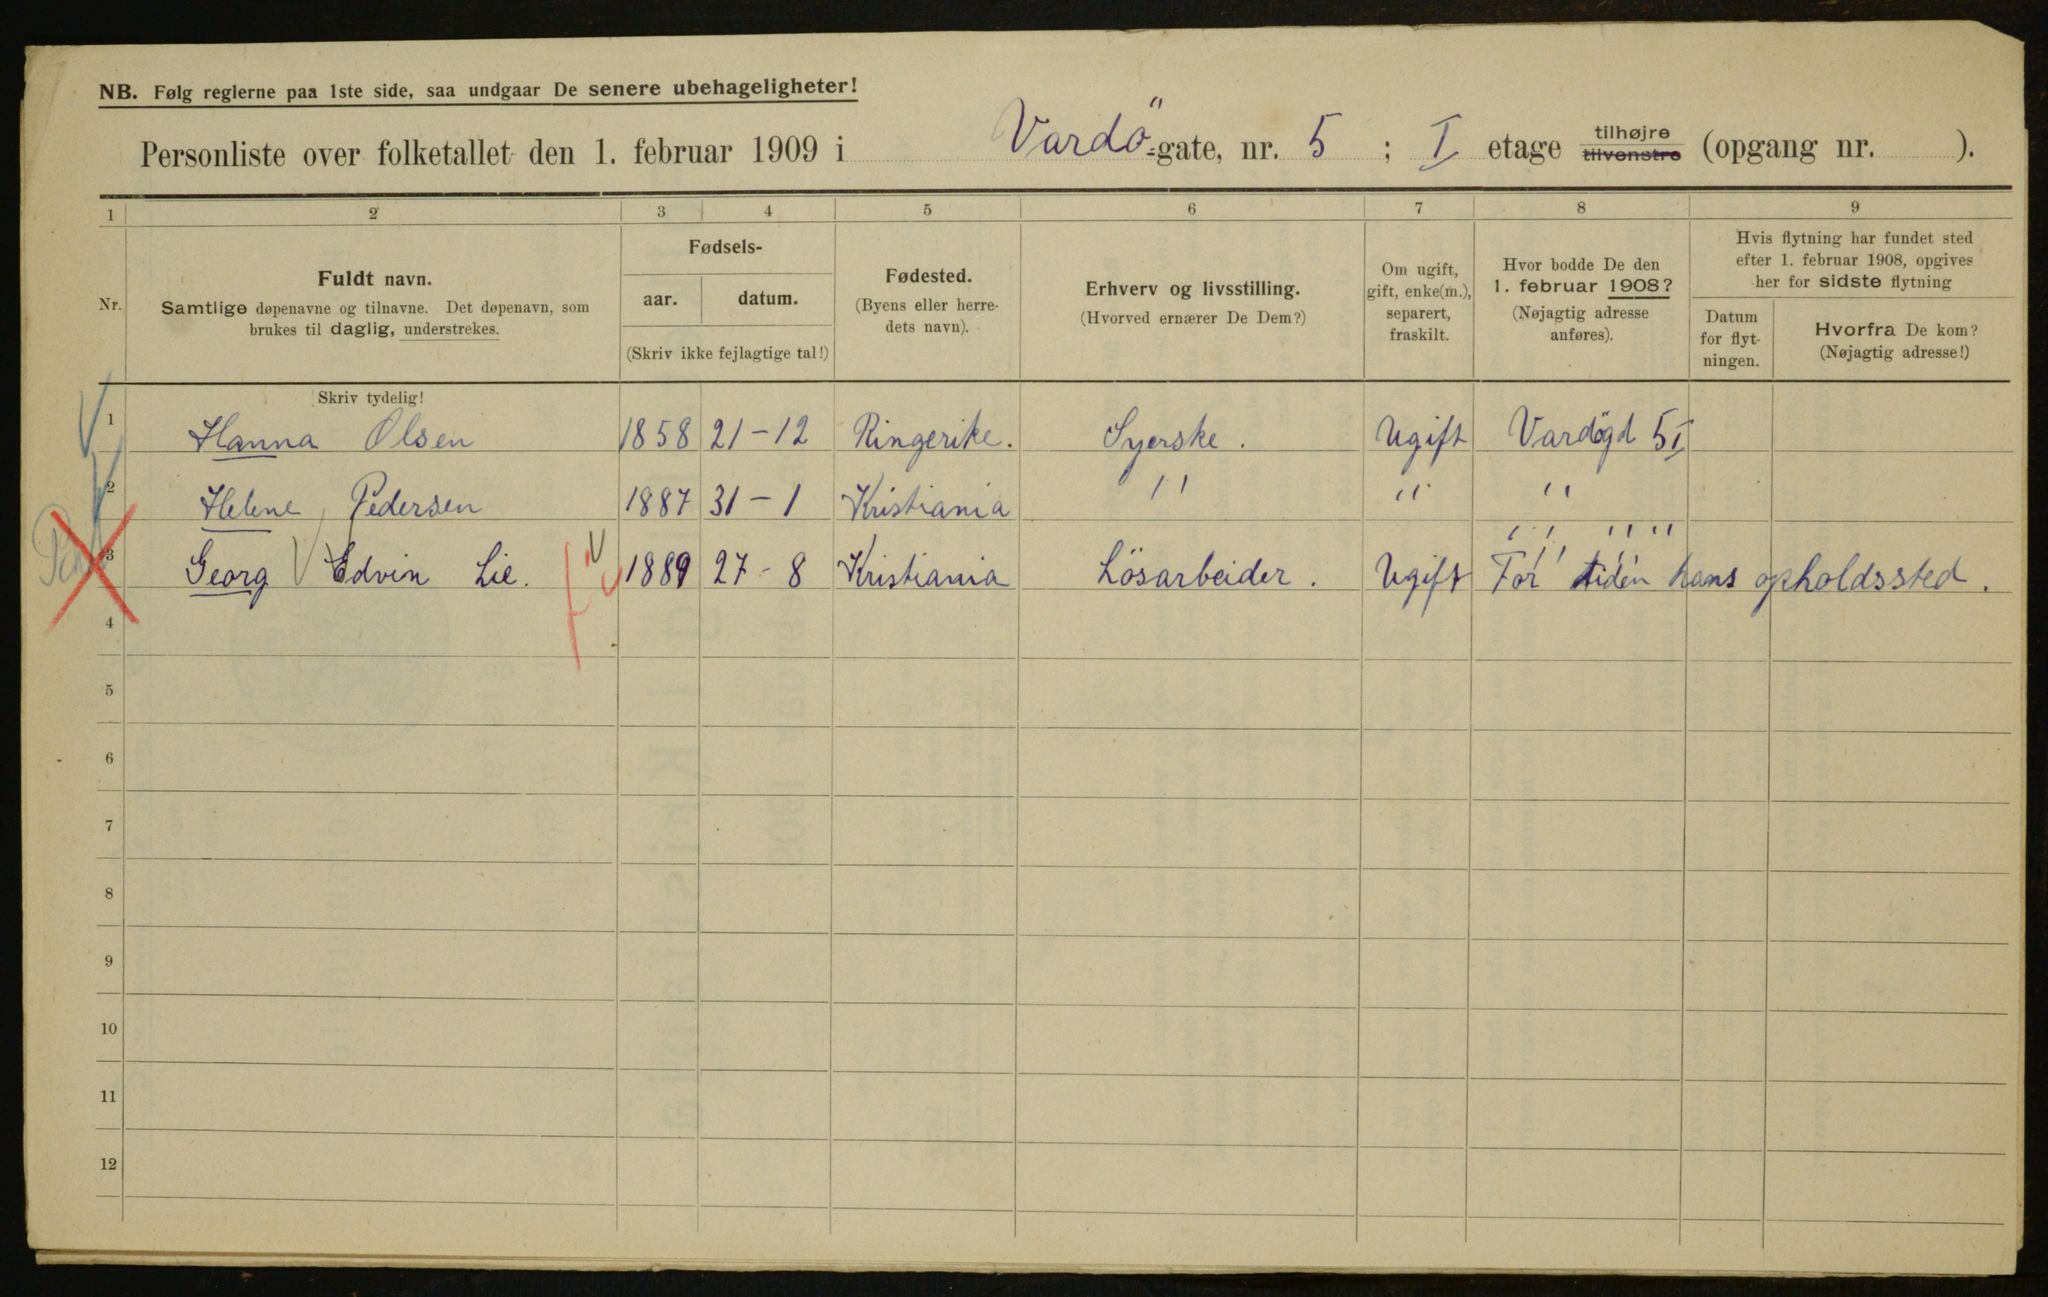 NB. Følg reglerne paa 1ste side, saa undgaar De senere ubehageligheter!
Personliste over folketallet den 1. februar 1909 i Vardö-gate, nr. 5 ; I etage tilhøjre tilvenstre (opgang nr. ).
1 2 3 4 5 6 7 8 9
Nr.
Fuldt navn.
Samtlige døpenavne og tilnavne. Det døpenavn, som
brukes til daglig, understrekes.
Fødsels-
aar. datum.
(Skriv ikke fejlagtige tal!)
Fødested.
(Byens eller herre-
dets navn).
Erhverv og livsstilling.
(Hvorved ernærer De Dem?)
Om ugift,
gift, enke(m.),
separert,
fraskilt.
Hvor bodde De den
1. februar 1908?
(Nøjagtig adresse
anføres).
Hvis flytning har fundet sted
efter 1. februar 1908, opgives
her for sidste flytning
Datum
for flyt-
ningen.
Hvorfra De kom?
(Nøjagtig adresse!)
Skriv tydelig!
1 Hanna Olsen 1858 21-12 Ringerike. Syerske. Ugift Vardøgd 5 I
2 Helene Pedersen 1887 31-1 Kristiania " " "
" "
3 Georg Edvin Lie. 1889 27-8 Kristiania Lösarbeider. Ugift For tiden hans opholdssted.
4
5
6
7
8
9
10
11
12